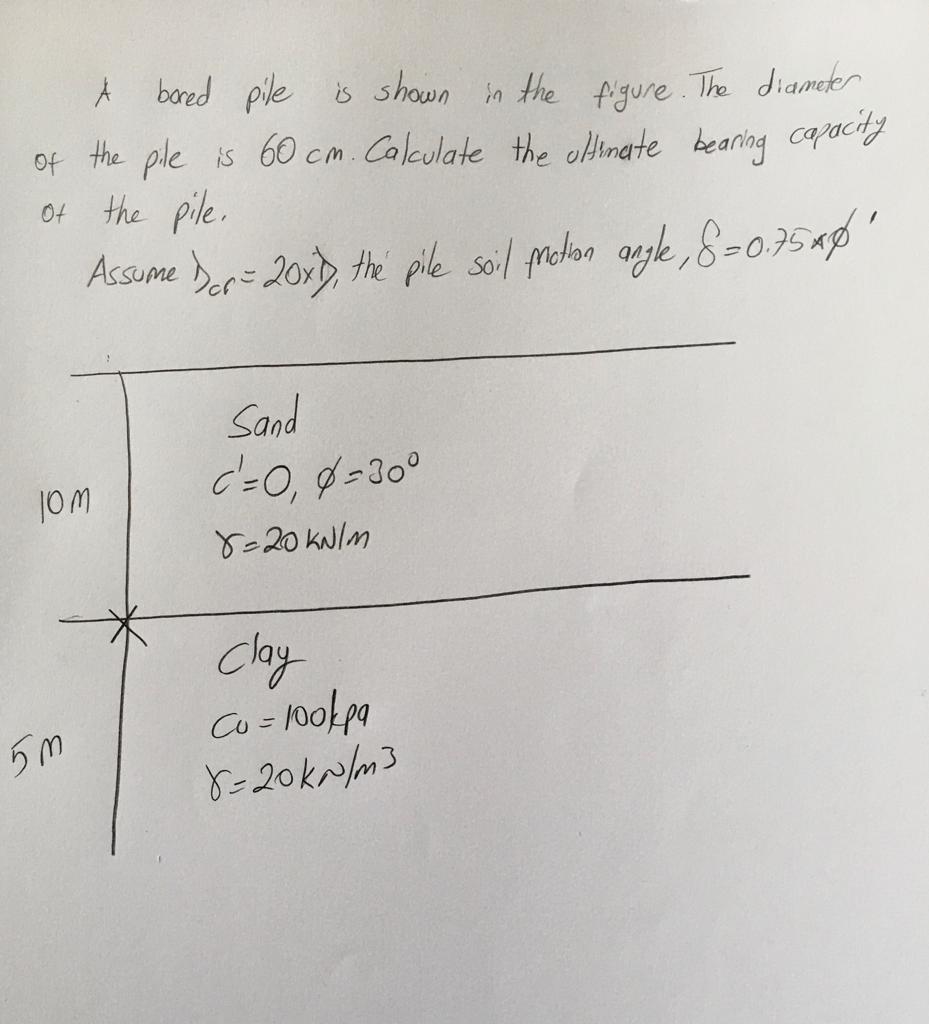 A bored pile is shown in the figure. The diameter
of the pile is 60 cm. Calculate the ultimate bearing capacity
of the pile.
Assume Dcr = 20xD, the pile soil friction angle, δ=0.75xϕ'
Sand
c'=0, ϕ=30°
10m
γ=20 kN/m
Clay
Cu = 100kpa
5m
γ=20kN/m3